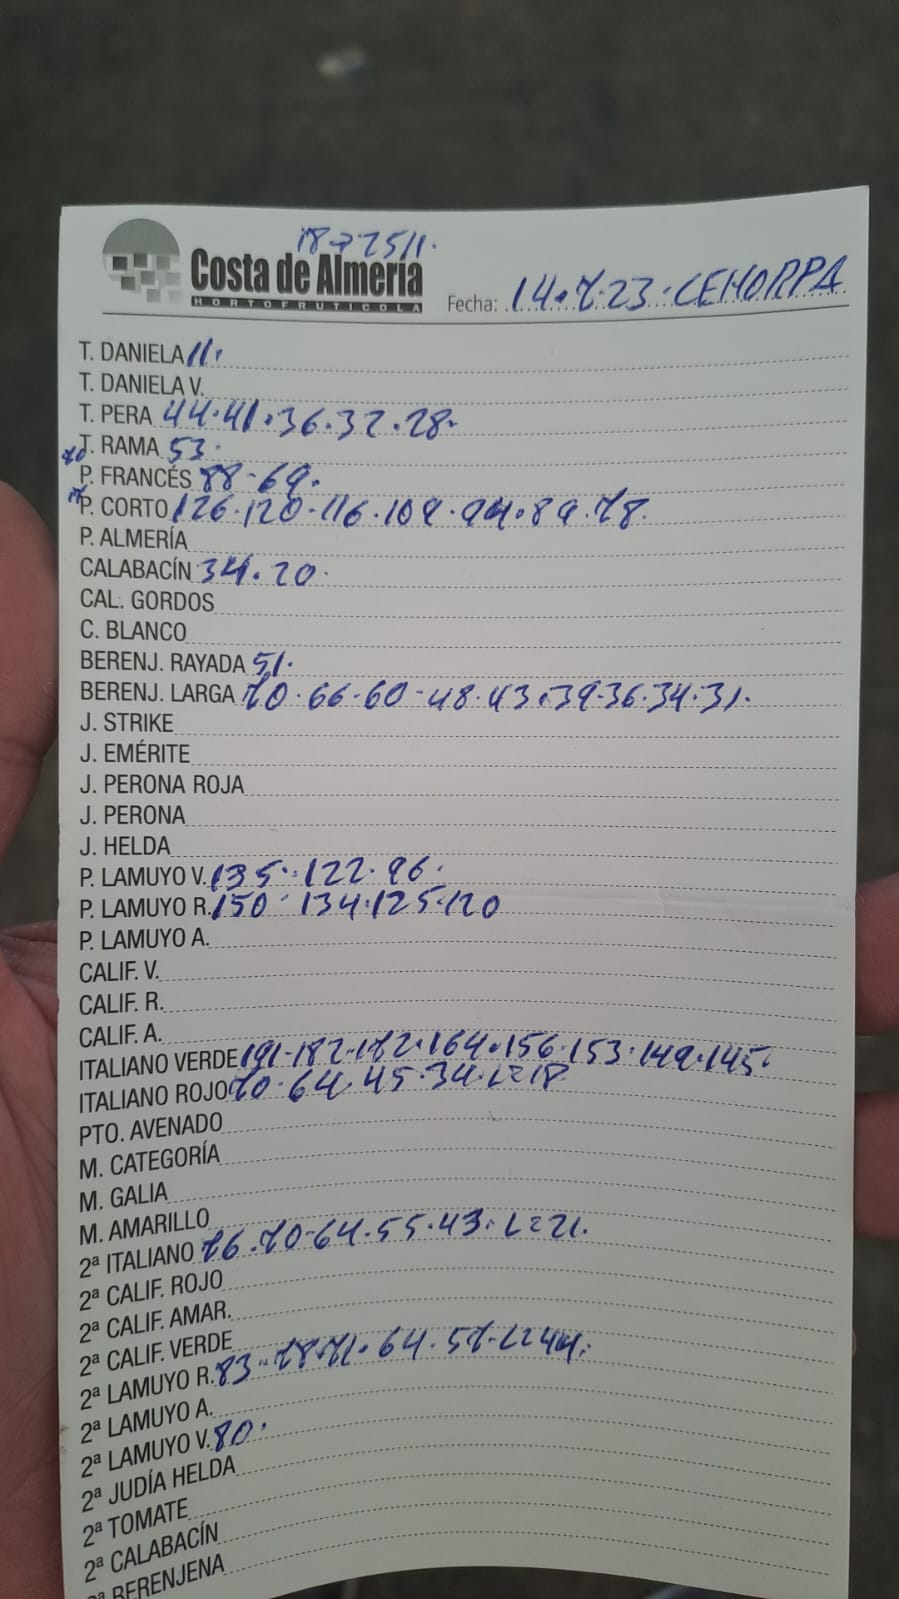 18-7 2511.
Costa de Almería
HORTOFRUTICOLA
Fecha: 14.7.23.CEHORPA
T. DANIELA 11.
T. DANIELA V.
T. PERA 44.41.36.32.28.
T. RAMA 53.
P. FRANCÉS 88-69.
P. CORTO 126.120.116.109.94.89.78.
P. ALMERÍA
CALABACÍN 34.20.
CAL. GORDOS
C. BLANCO
BERENJ. RAYADA 51.
BERENJ. LARGA 70.66.60-48.43.39.36.34.31.
J. STRIKE
J. EMÉRITE
J. PERONA ROJA
J. PERONA
J. HELDA
P. LAMUYO V. 135.122.96.
P. LAMUYO R. 150.134.125.120
P. LAMUYO A.
CALIF. V.
CALIF. R.
CALIF. A.
ITALIANO VERDE 191-182.172.164.156.153.149.145.
ITALIANO ROJO 70.64.45.34.18
PTO. AVENADO
M. CATEGORÍA
M. GALIA
M. AMARILLO
2ª ITALIANO 76.70-64.55.43.21.
2ª CALIF. ROJO
2ª CALIF. AMAR.
2ª CALIF. VERDE
2ª LAMUYO R. 83.78.71.64.57.44.
2ª LAMUYO A.
2ª LAMUYO V. 80.
2ª JUDÍA HELDA
2ª TOMATE
2ª CALABACÍN
BERENJENA